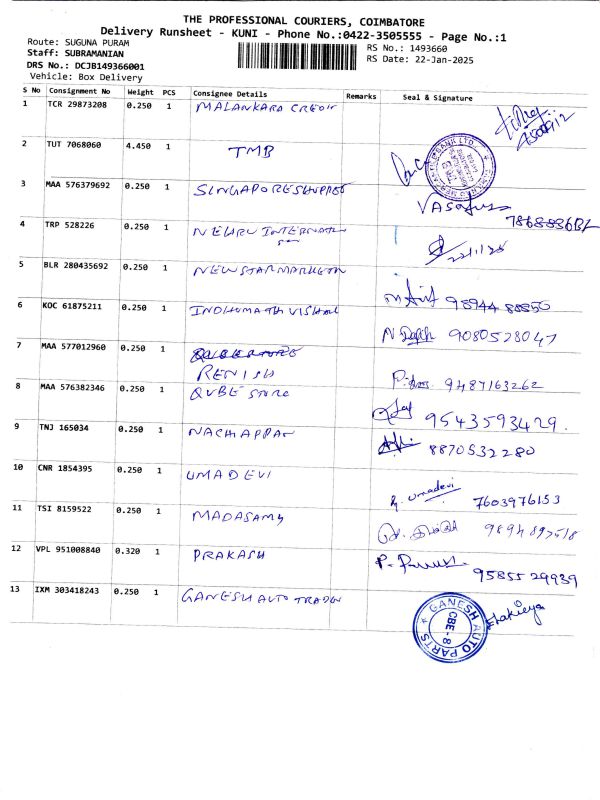 THE PROFESSIONAL COURIERS, COIMBATORE
Delivery Runsheet - KUNI - Phone No.:0422-3505555 - Page No.:1
Route: SUGUNA PURAM
RS No.: 1493660
Staff: SUBRAMANIAN
RS Date: 22-Jan-2025
DRS No.: DCJB149366001
DCJB149366001
Vehicle: Box Delivery
S No Consignment No Weight PCS Consignee Details Remarks Seal & Signature
1 TCR 29873208 0.250 1 MALANKARA CREDIT
2 TUT 7068060 4.450 1 TMB
3 MAA 576379692 0.250 1
7868836
4 TRP 528226 0.250 1 NEHRU
5 BLR 280435692 0.250 1
6 KOC 61875211 0.250 1
9080528047
7 MAA 577012960 0.250 1 RENISH
9487163262
8 MAA 576382346 0.250 1 QUBE STORE
9543593429.
9 TNJ 165034 0.250 1 NACHIAPPAN
8870532280
10 CNR 1854395 0.250 1 UMADEVI
Umadevi 7603976153
11 TSI 8159522 0.250 1 MADASAMY
12 VPL 951008840 0.320 1 PRAKASH
9585529939
13 IXM 303418243 0.250 1 GANESH AUTO TRADER
GANESH AUTO PARTS
CBE-8